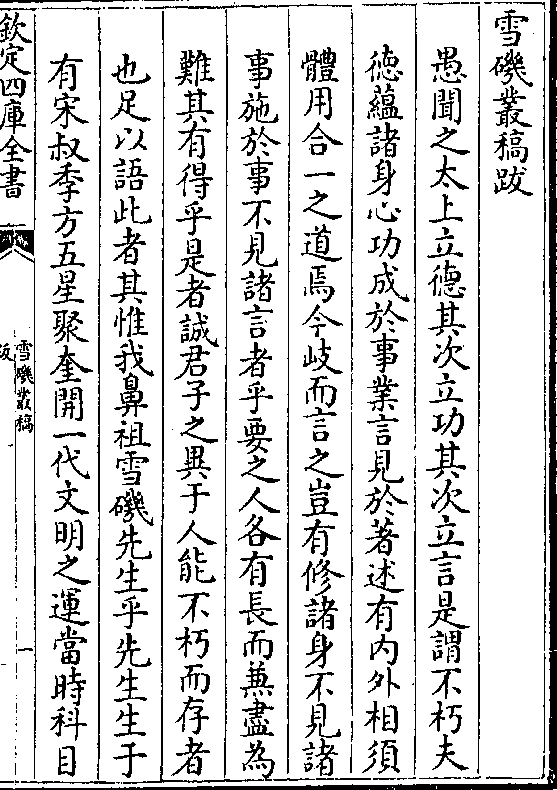 雪磯叢稿跋
愚聞之太上立德其次立功其次立言是謂不朽夫
德蘊諸身心功成於事業言見於著述有内外相須
體用合一之道焉今歧而言之豈有修諸身不見諸
事施於事不見諸言者乎要之人各有長而兼盡為
難其有得乎是者誠君子之異于人能不朽而存者
也足以語此者其惟我鼻祖雪磯先生乎先生生于
有宋叔季方五星聚奎開一代文明之運當時科目
欽定四庫全書
雪磯叢稿
跋
一